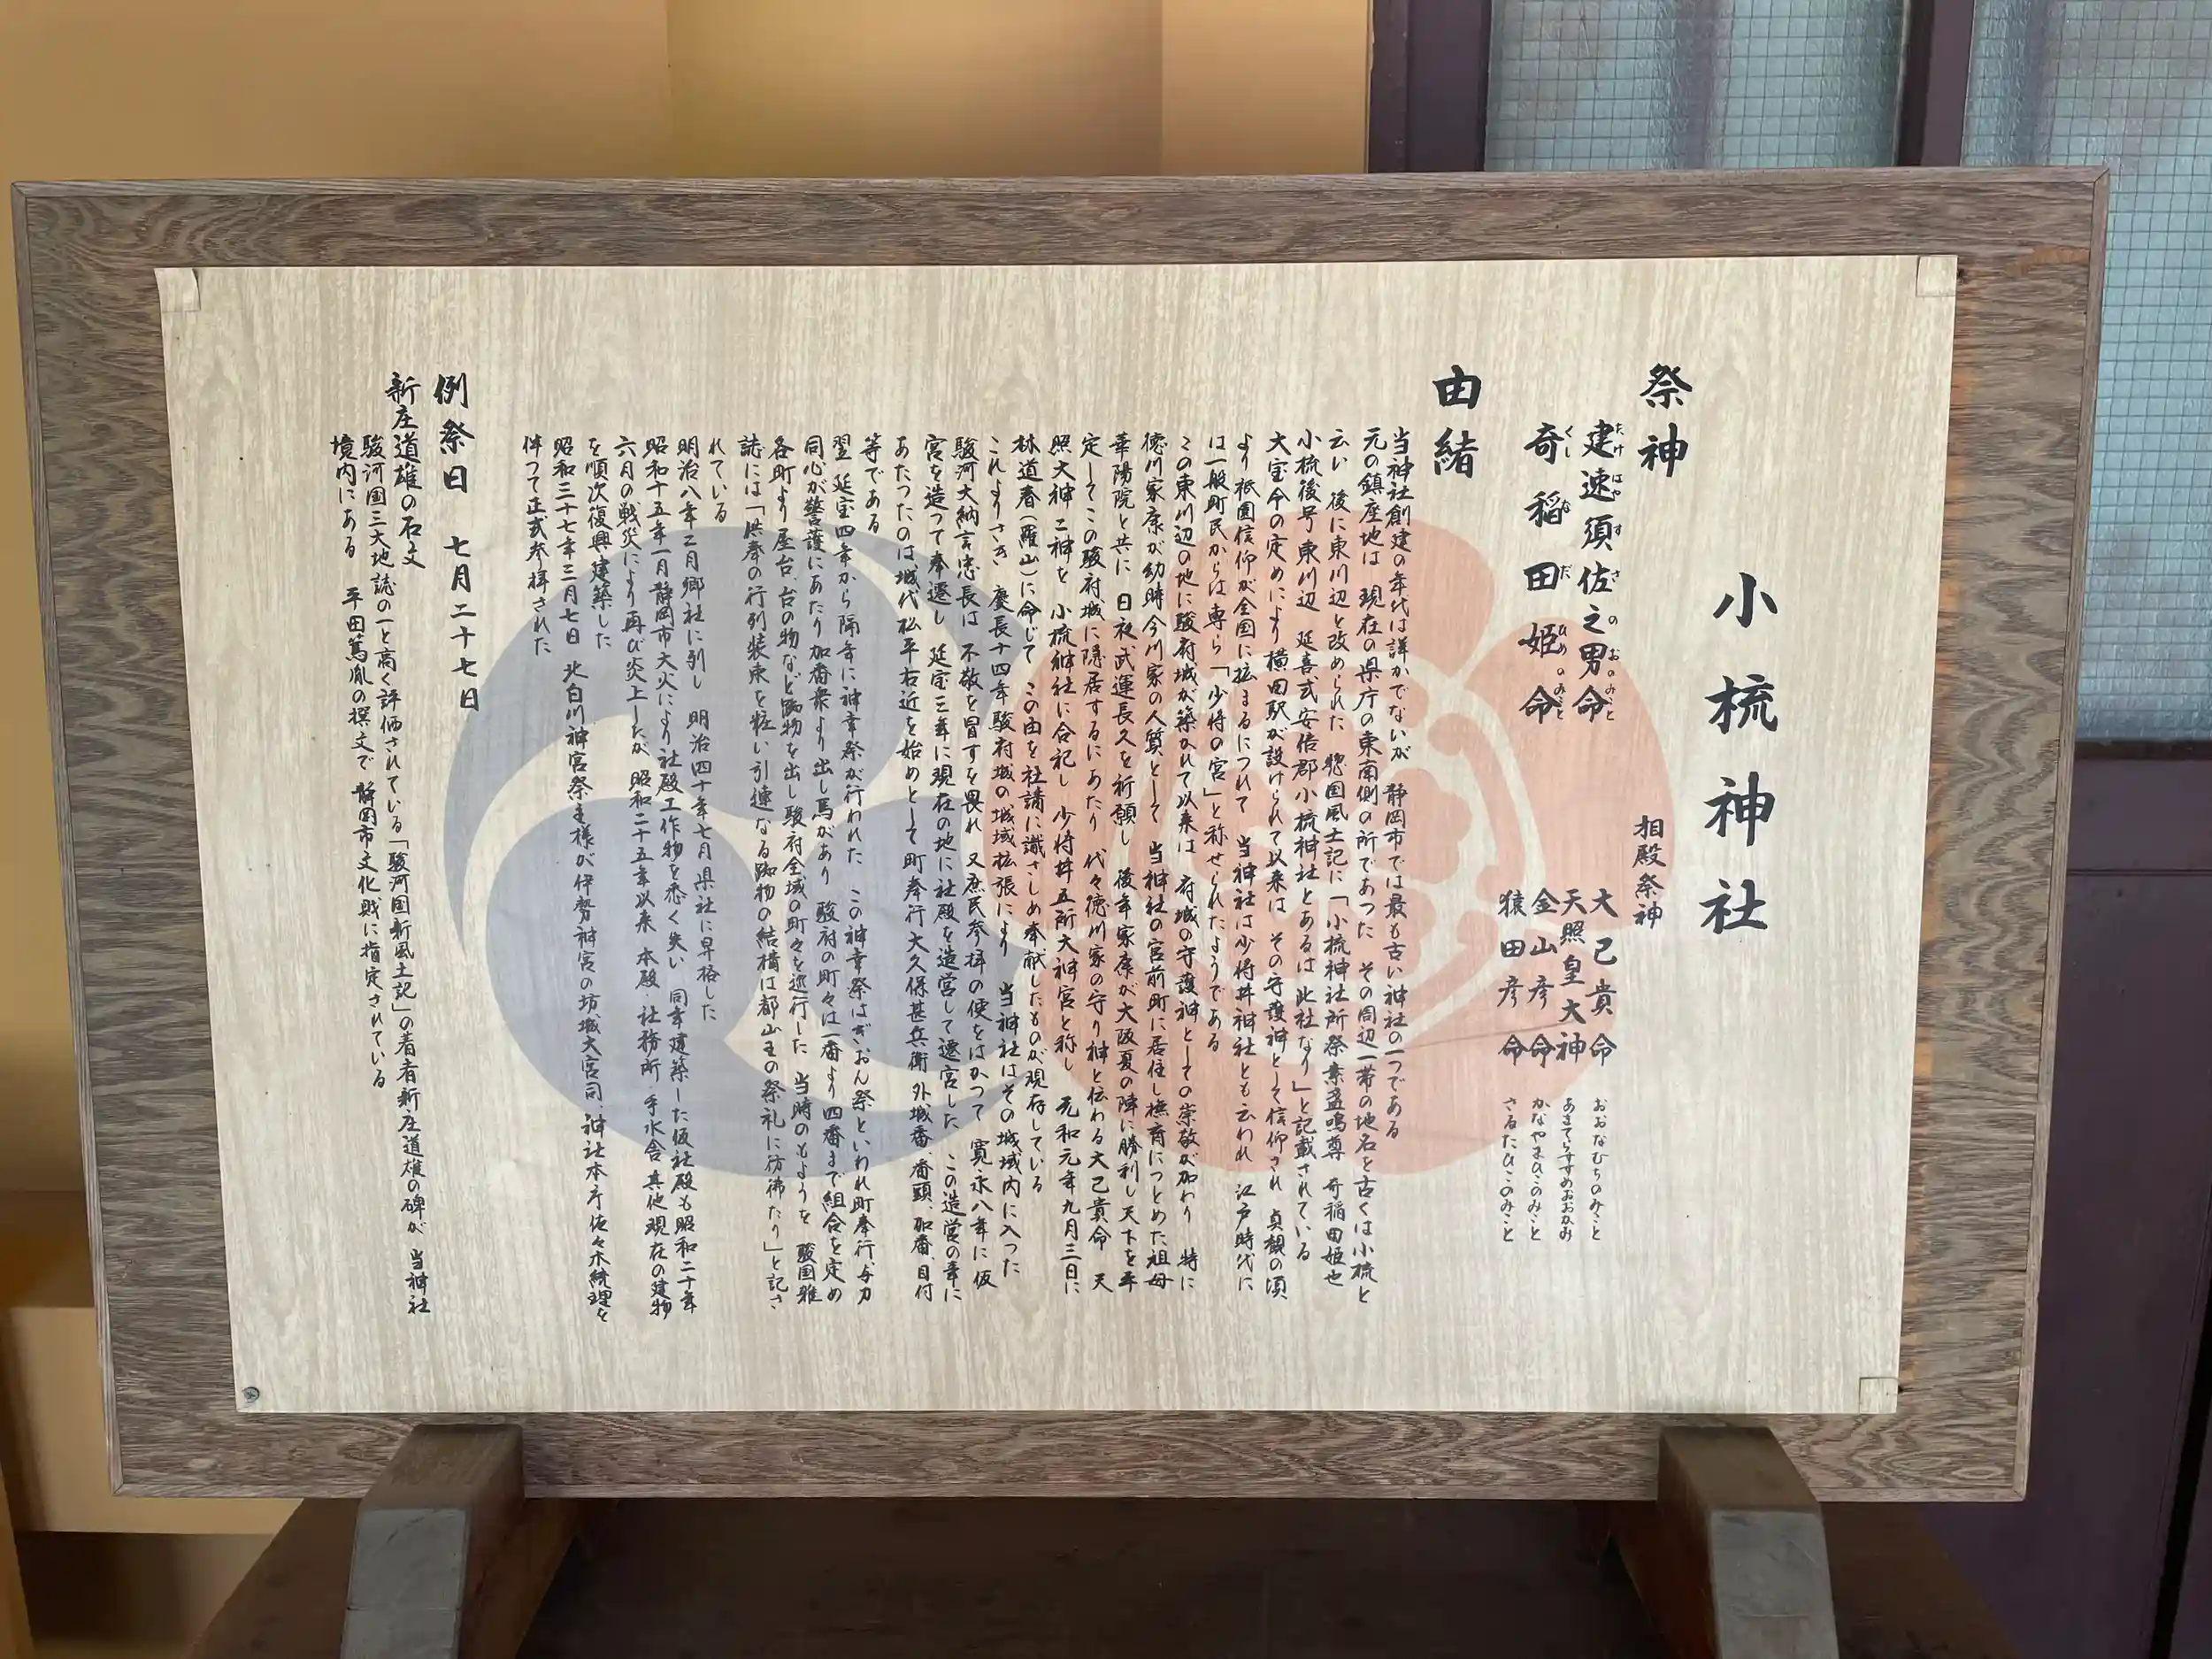 小梳神社
祭神
建速須佐之男命
たけはやすさのおのみこと
奇稲田姫命
くしなだひめのみこと
相殿祭神
大己貴命 おおなむちのみこと
天照皇大神 あまてらすすめおおかみ
金山彦命 かなやまひこのみこと
猿田彦命 さるたひこのみこと
由緒
当神社創建の年代は詳かでないが 静岡市では最も古い神社の一つである
元の鎮座地は 現在の県庁の東南側の所であつた その周辺一帯の地名を古くは小梳と
云い 後に東川辺と改められた 惣国風土記に「小梳神社所祭素盞嗚尊 奇稲田姫也
小梳後号東川辺 延喜式安倍郡小梳神社とあるは此社なり」と記載されている
大宝令の定めにより横田駅が設けられて以来は その守護神として信仰され 貞観の頃
より祇園信仰が全国に拡まるにつれて 当神社は少将井神社とも云われ 江戸時代に
は一般町民からは専ら「少将の宮」と称せられたようである
この東川辺の地に駿府城が築かれて以来は 府城の守護神としての崇敬が加わり 特に
徳川家康が幼時今川家の人質として 当神社の宮前町に居住し撫育につとめた祖母
華陽院と共に 日夜武運長久を祈願し 後年家康が大阪夏の陣に勝利し天下を平
定してこの駿府城に隠居するにあたり 代々徳川家の守り神と伝わる大己貴命 天
照大神二神を 小梳神社に合祀し 少将井五所大神宮と称し 元和元年九月三日に
林道春(羅山)に命じて この由を社請に識さしめ奉献したものが現存している
これよりさき 慶長十四年駿府城の城域拡張により 当神社はその城域内に入つた
駿河大納言忠長は 不敬を冒すを畏れ 又庶民参拝の便をはかつて 寛永八年に仮
宮を造つて奉遷し 延宝三年に現在の地に社殿を造営して遷宮した この造営の年に
あたつたのは城代松平右近を始めとして町奉行大久保甚兵衛 外城番、番頭、加番、目付
等である
翌 延宝四年から隔年に神幸祭が行われた この神幸祭はぎおん祭といわれ町奉行、与力
同心が警護にあたり加番衆より出し馬があり 駿府の町々は一番より四番まで組合を定め
各町より屋台、台の物など踟物を出し駿府全域の町々を巡行した 当時のもようを 駿国雅
誌には「供奉の行列装束を粧い引連なる踟物の結構は都山王の祭礼に彷彿たり」と記さ
れている
明治八年二月郷社に列し 明治四十年七月県社に昇格した
昭和十五年一月静岡市大火により社殿工作物を悉く失い 同年建築した仮社殿も昭和二十年
六月の戦災により再び炎上したが 昭和二十五年以来 本殿、社務所、手水舎 其他現在の建物
を順次復興建築した
昭和三十七年三月七日 北白川神宮祭主様が伊勢神宮の坊城大宮司 神社本庁佐々木統理を
伴つて正式参拝された
例祭日 七月二十七日
新庄道雄の石文
駿河国三大地誌の一と高く評価されている「駿河国新風土記」の着者新庄道雄の碑が 当神社
境内にある 平田篤胤の撰文で 静岡市文化財に指定されている